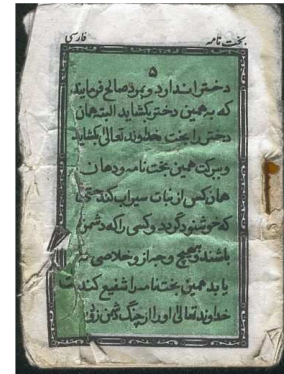 بخت نامه فارسی
۵
دختر اندارد و بمرد صالح فرمایند
که به همین دختر بکشاید البته همان
دختر را بخت خداوند تعالی بکشاید
وببرکت همین بخت نامه ودهان
هازکس از نبات سیراب کند تا
که خوشنود گردد وکسی را که دشمن
باشند وهیچ وجه از و خلاصی نه
یابد همین بخت نامه را شفیع کند
خداوند تعالی او را از چنگ دشمن